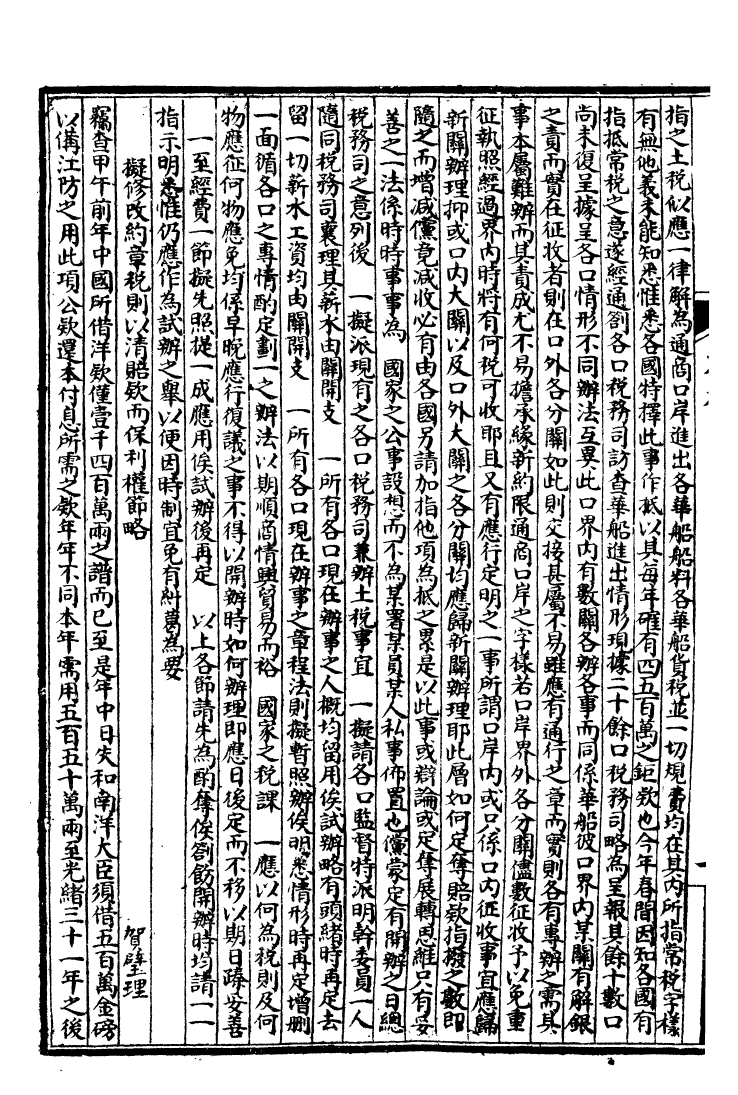 指之土税似應一律解為通商口岸進出各華船船料各華船貨税並一切規費均在其內所指常税字樣
有無他義未能知悉惟悉各國特擇此事作抵以其每年確有四五百萬之鉅欵也今年春間因知各國有
指抵常税之意遂經通劄各口税務司訪查華船進出情形現據二十餘口税務司略為呈報其餘十數口
尚未復呈據呈各口情形不同辦法互異此口界內有數關各辦各事而同係華船彼口界內某關有解銀
之責而實在征收者則在口外各分關如此則交接甚屬不易雖應有通行之章而實則各有專辦之需其
事本屬難辦而其責成尤不易擔承緣新約限通商口岸之字樣若口岸界外各分關儘數征收予以免重
征執照經過界內時將有何税可收耶且又有應行定明之一事所謂口岸內或只係口內征收事宜應歸
新關辦理抑或口內大關以及口外大關之各分關均應歸新關辦理耶此層如何定奪賠欵指撥之數即
隨之而增減儻竟減收必有由各國另請加指他項為抵之累是以此事或辯論或定奪展轉思維只有妥
善之一法係時時事事為　國家之公事設想而不為某署某員某人私事佈置也儻蒙定有開辦之日總
税務司之意列後　一擬派現有之各口税務司兼辦土税事宜　一擬請各口監督特派明幹委員一人
隨同税務司襄理其薪水由關開支　一所有各口現在辦事之人概均留用俟試辦略有頭緒時再定去
留一切薪水工資均由關開支　一所有各口現在辦事之章程法則擬暫照辦俟明悉情形時再定增删
一面循各口之專情酌定劃一之辦法以期順商情興貿易而裕　國家之税課　一應以何為税則及何
物應征何物應免均係早晚應行復議之事不得以開辦時如何辦理即應日後定而不移以期日臻妥善
一至經費一節擬先照提一成應用俟試辦後再定　以上各節請先為酌奪俟劄飭開辦時均請一一
指示明悉惟仍應作為試辦之舉以便因時制宜免有糾葛為要
擬修改約章税則以清賠欵而保利權節略　賀璧理
竊查甲午前年中國所借洋欵僅壹千四百萬兩之譜而已至是年中日失和南洋大臣須借五百萬金磅
以備江防之用此項公欵還本付息所需之欵年年不同本年需用五百五十萬兩至光緒三十一年之後